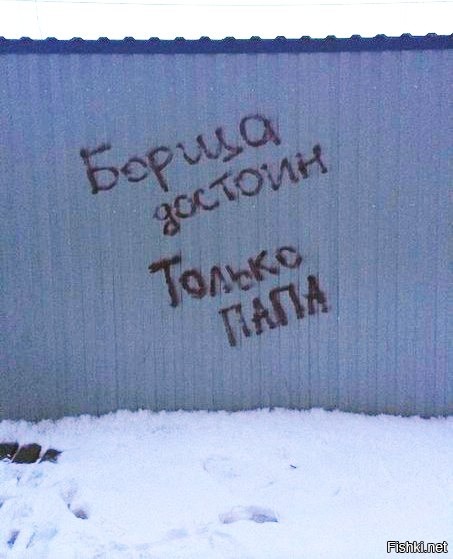 Борща
достоин
Только
ПАПА
Fishki.net